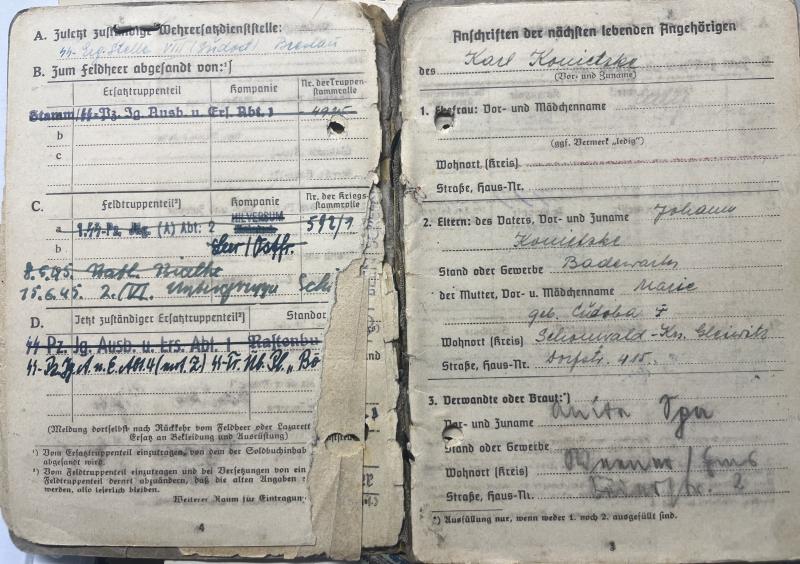 A. Zuletzt zuständige Wehrersatzdienststelle:
SS-Erg. Stelle VIII (Südost) Breslau
B. Zum Feldheer abgesandt von:¹)
Ersatztruppenteil
Kompanie
Nr. der Truppenstammrolle
Stamm/SS-Pz. Jg. Ausb. u. Ers. Abt. 1
b
c
C.
Feldtruppenteil²)
Kompanie
Nr. der Kriegsstammrolle
a 1.SS-Pz. Jäg. (A) Abt. 2
HILVERSUM
592/1
b
Leer/Ostfr.
8.5.45.
15.6.45. 2./VI. Untergruppe
D.
Jetzt zuständiger Ersatztruppenteil²)
Standor
SS Pz. Jg. Ausb. u. Ers. Abt. 1 Rastenbu
SS-Pz. Jg. A. u. E. Abt. 4 (mot. Z) SS-Tr. Üb. Pl. „Bö
(Meldung dortselbst nach Rückkehr vom Feldheer oder Lazarett
Ersatz an Bekleidung und Ausrüstung)
¹) Vom Ersatztruppenteil einzutragen, von dem der Soldbuchinhab
abgesandt wird.
²) Vom Feldtruppenteil einzutragen und bei Versetzungen von ein
Feldtruppenteil derart abzuändern, daß die alten Angaben
werden, also leserlich bleiben.
Weiterer Raum für Eintragun
4
Anschriften der nächsten lebenden Angehörigen
des Karl Konietzke
(Vor- und Zuname)
1. Ehefrau: Vor- und Mädchenname
(ggf. Vermerk „ledig“)
Wohnort (Kreis)
Straße, Haus-Nr.
2. Eltern: des Vaters, Vor- und Zuname Johann
Konietzke
Stand oder Gewerbe Badewärter
der Mutter, Vor- u. Mädchenname Marie
geb. Cudoba
Wohnort (Kreis) Schönwald-Krs. Gleiwitz
Straße, Haus-Nr. Dorfstr. 415.
3. Verwandte oder Braut:*)
Vor- und Zuname Anita
Stand oder Gewerbe
Wohnort (Kreis) Weener/Ems
Straße, Haus-Nr. 2
*) Ausfüllung nur, wenn weder 1. noch 2. ausgefüllt sind.
3